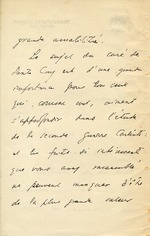 grande amabilité.
Le sujet du curé de
Santa Cruz est d'une grande
importance pour tous ceux
qui, comme moi, aiment
s'approfondir dans l'étude
de la seconde guerre Carliste,
et les faits si intéressants
que vous avez rassemblés
ne peuvent manquer d'être
de la plus grande valeur